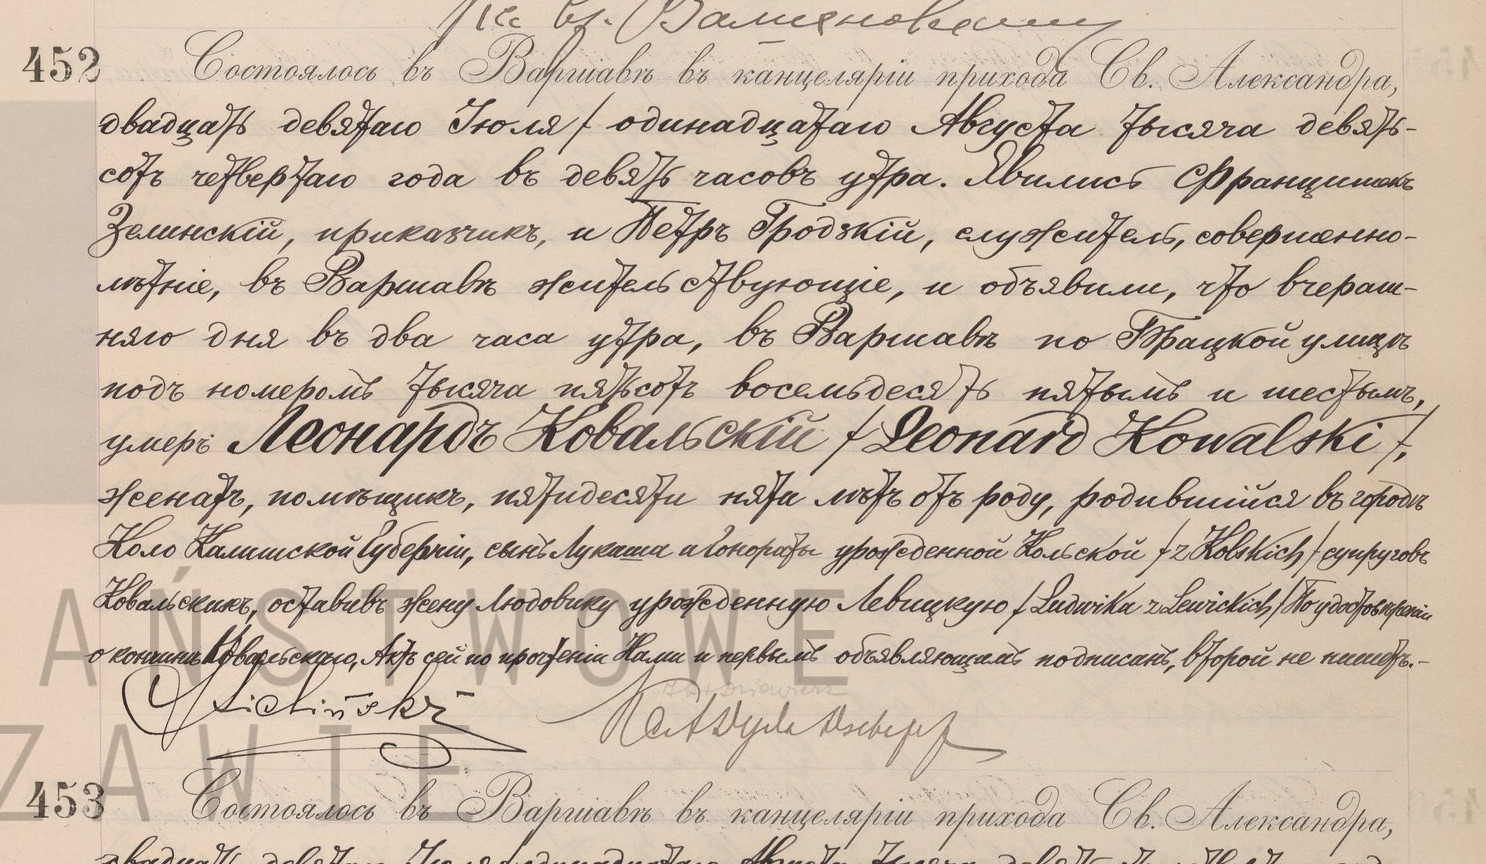 452 Состоялось въ Варшавѣ въ канцеляріи прихода Св. Александра,
двадцать девятаго Іюля / одинадцатаго Августа тысяча девять-
сотъ четвертаго года въ девять часовъ утра. Явились Францишекъ
Зелинскій, приказчикъ, и Петръ Гродзкій, служитель, совершенно-
лѣтніе, въ Варшавѣ жительствующіе, и объявили, что вчераш-
няго дня въ два часа утра, въ Варшавѣ по Брацкой улицѣ
подъ номеромъ тысяча пятьсотъ восемьдесятъ пятымъ и шестымъ,
умеръ Леонардъ Ковальскій / Leonard Kowalski /,
женатъ, помѣщикъ, пятидесяти пяти лѣтъ отъ роду, родившійся въ городѣ
Коло Калишской Губерніи, сынъ Лукаша и Гонораты урожденной Кольской / z Kolskich / супруговъ
Ковальскихъ, оставивъ жену Людовику урожденную Левицкую / Ludwika z Lewickich / По удостовѣреніи
о кончинѣ Ковальскаго, Актъ сей по прочтеніи Нами и первымъ объявляющимъ подписанъ, второй не пишетъ.-
AŃSTWOWE
ZAWIE
453 Состоялось въ Варшавѣ въ канцеляріи прихода Св. Александра,